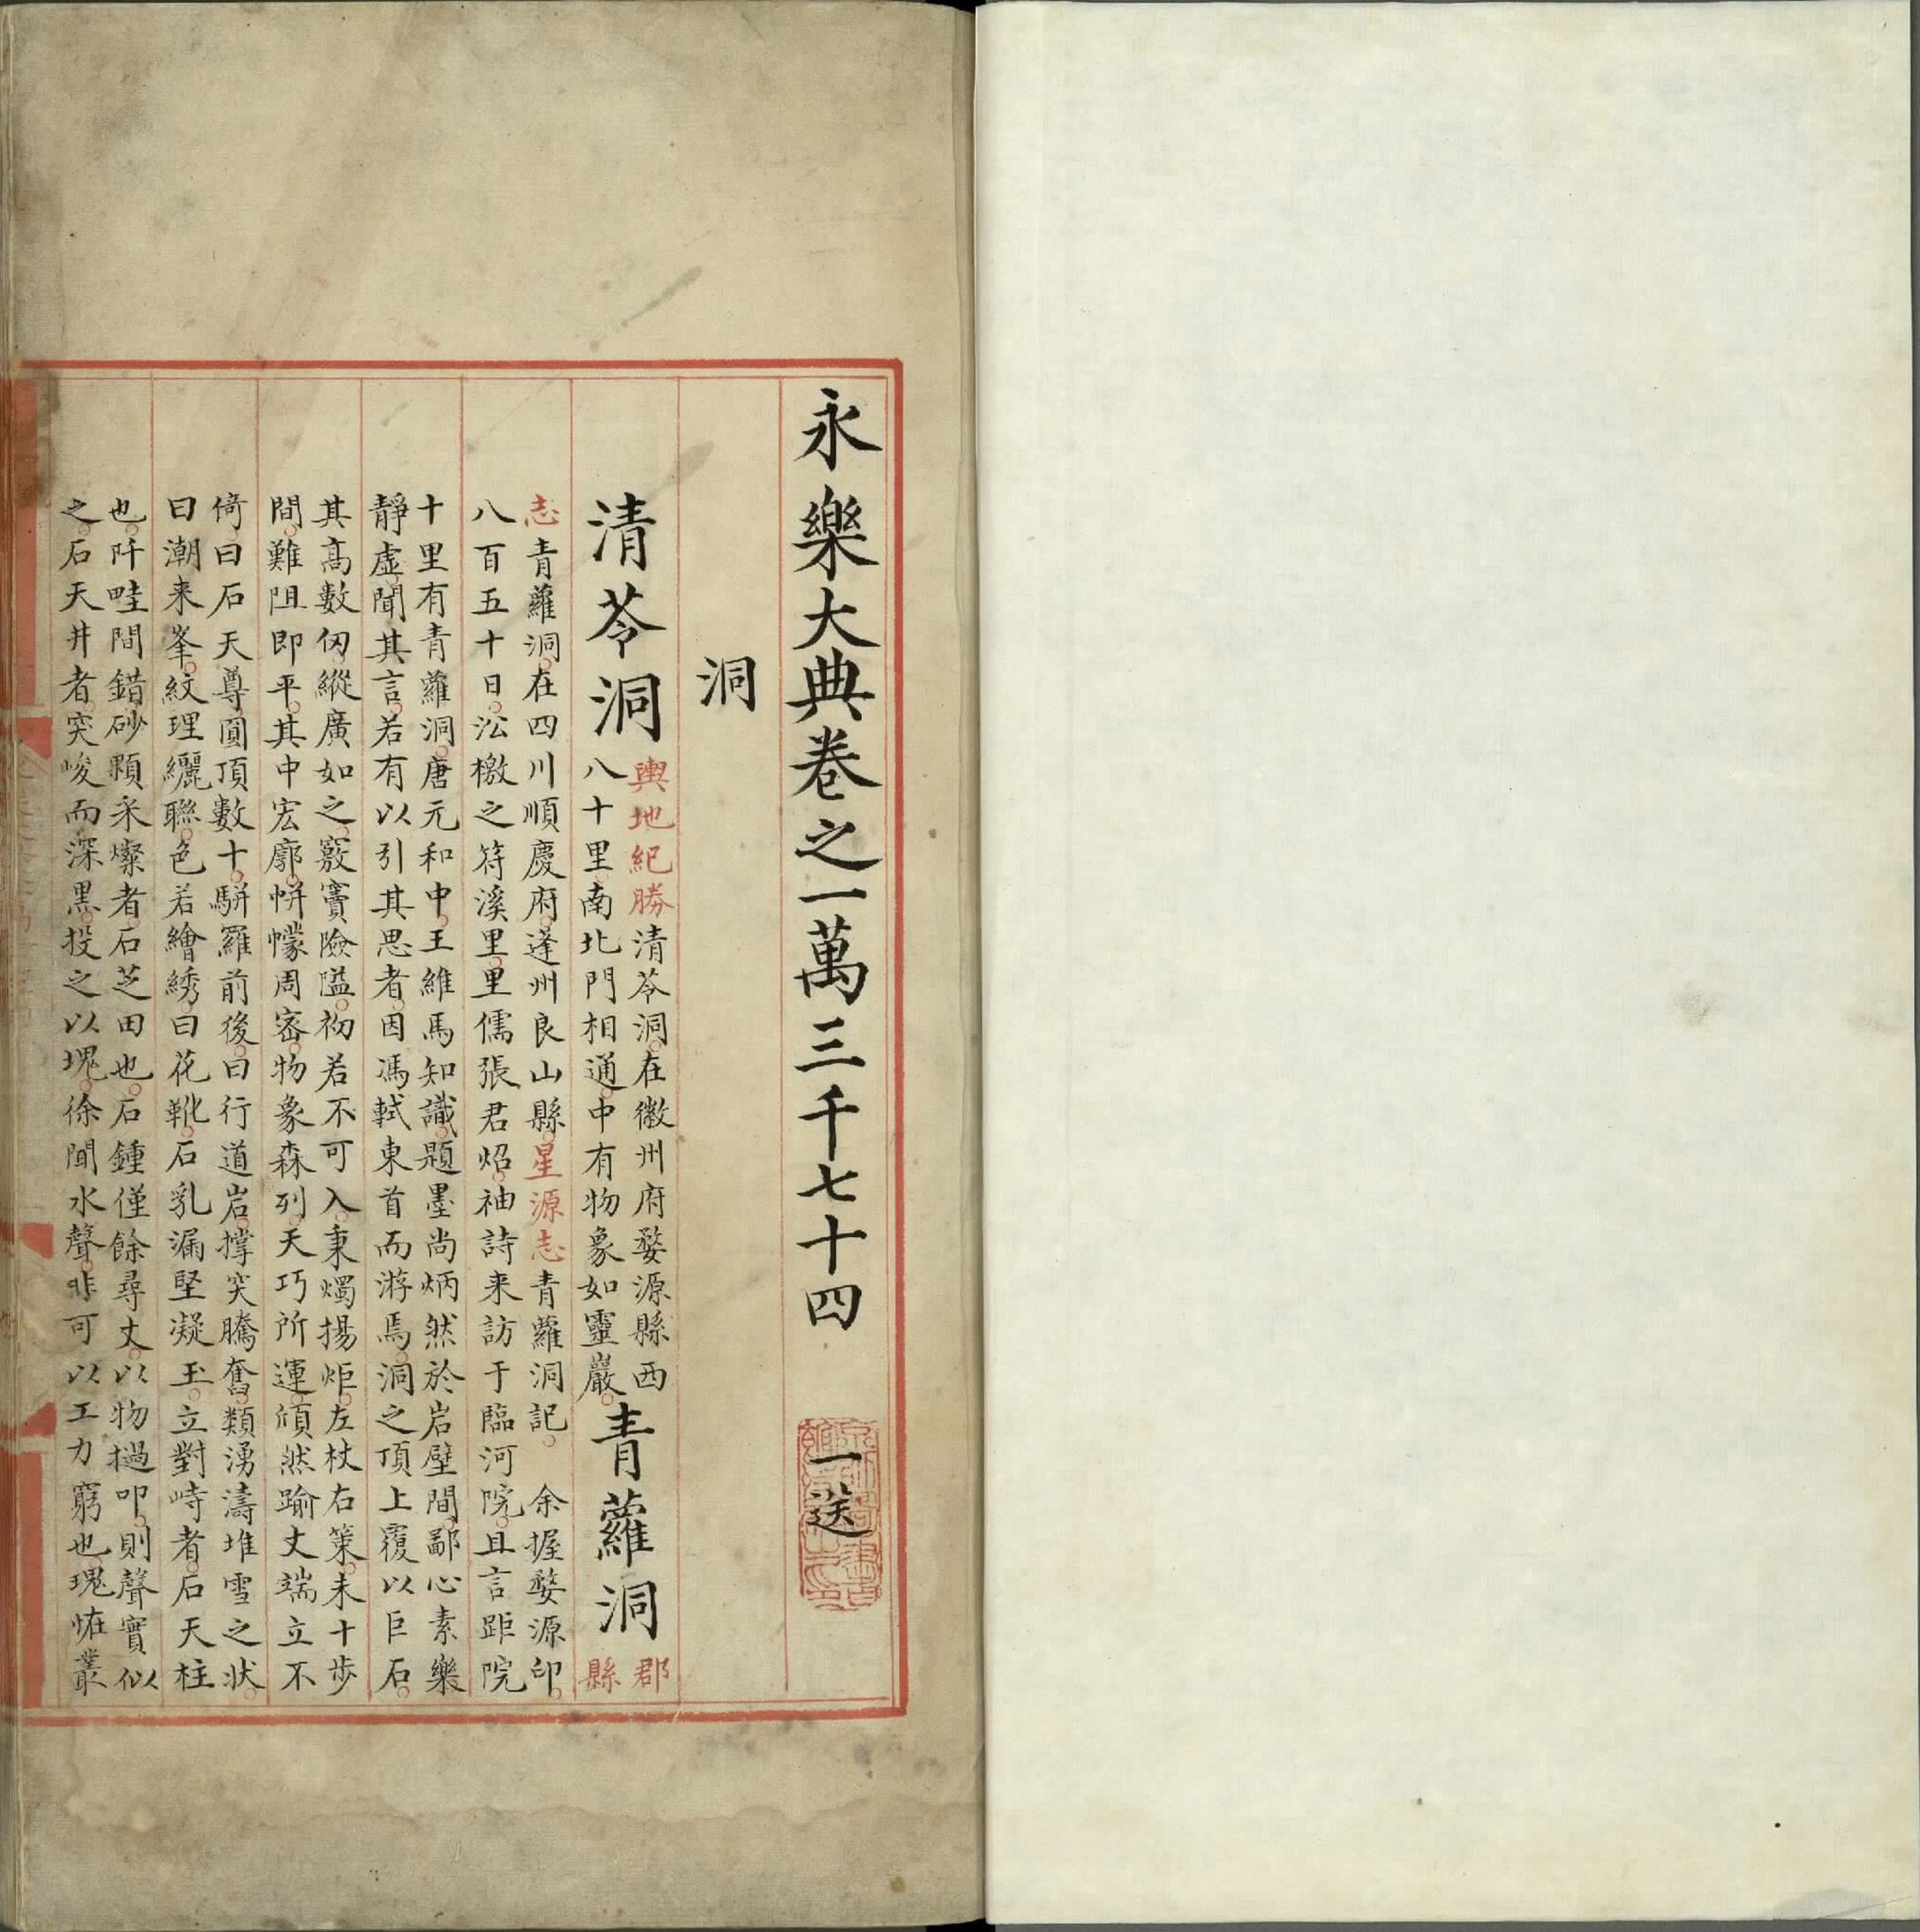 永樂大典卷之一萬三千七十四 一送
洞
清苓洞
輿地紀勝清苓洞在徽州府婺源縣西
八十里南北門相通中有物象如靈巖
青蘿洞
郡
縣
志青蘿洞在四川順慶府蓬州良山縣星源志青蘿洞記 余握婺源印
八百五十日訟檄之符溪里里儒張君炤袖詩来訪于臨河院且言距院
十里有青蘿洞唐元和中王維馬知識題墨尚炳然於岩壁間鄙心素樂
靜虛聞其言若有以引其思者因馮軾東首而游焉洞之頂上覆以巨石
其高數仞縱廣如之竅竇險隘初若不可入秉燭揚炬左杖右策未十步
間難阻即平其中宏廓帡幪周密物象森列天巧所運傾然踰丈端立不
倚曰石天尊圓頂數十駢羅前後曰行道岩撑突騰奮類湧濤堆雪之状
曰潮来峯紋理纚聯色若繪綉曰花靴石乳漏堅凝玉立對峙者石天柱
也阡畦間錯砂顆采燦者石芝田也石鍾僅餘尋丈以物撾叩則聲實似
之石天井者突峻而深黒投之以塊徐聞水聲非可以工力窮也瑰恠叢